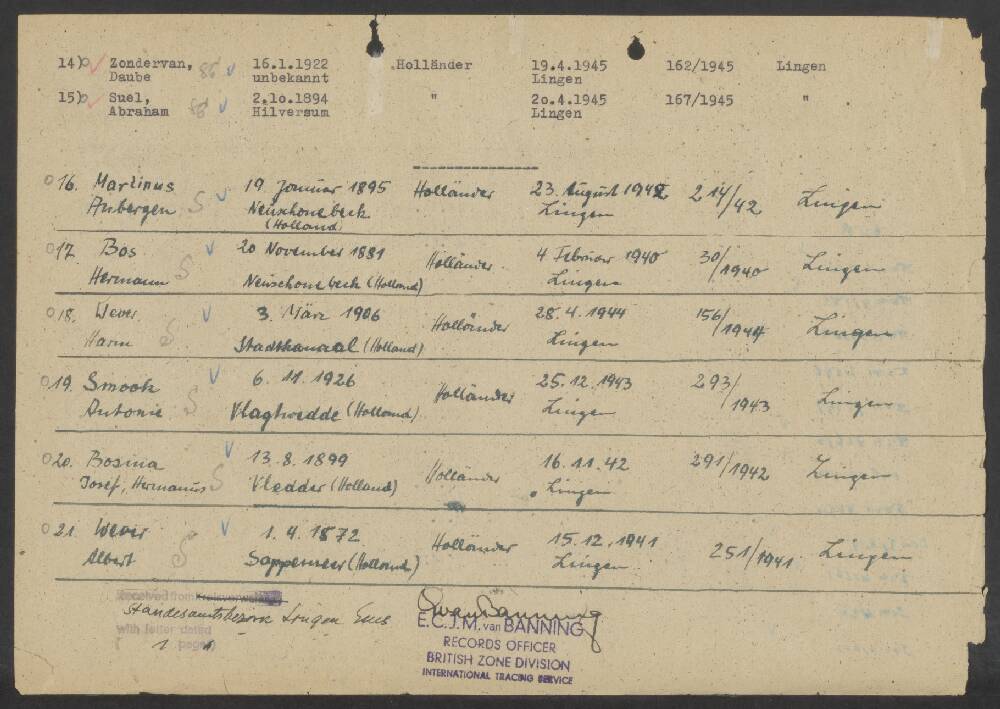 14) Zondervan, 16.1.1922 Holländer 19.4.1945 162/1945 Lingen
Daube unbekannt Lingen
15) Suel, 2.10.1894 " 20.4.1945 167/1945 "
Abraham Hilversum Lingen
16. Martinus 19 Januar 1895 Holländer 23. August 1942 214/42 Lingen
Anbergen S Neuschonebeck Lingen
(Holland)
17. Bos 20 November 1881 Holländer 4 Februar 1940 30/1940 Lingen
Hermann S Neuschonebeck (Holland) Lingen
18. Wever 3. März 1906 Holländer 28.4.1944 156/1944 Lingen
Harm S Stadskanaal (Holland) Lingen
19. Smook 6.11.1926 Holländer 25.12.1943 293/1943 Lingen
Antonie S Vlagtwedde (Holland) Lingen
20. Bosina 13.8.1899 Holländer 16.11.42 291/1942 Lingen
Josef, Hermanus S Vledder (Holland) Lingen
21. Wever 1.4.1872 Holländer 15.12.1941 251/1941 Lingen
Albert S Sappemeer (Holland) Lingen
Received from Kreisverwaltung
Standesamtsbezirk Lingen Ems
with letter dated
1 page)
E.C.J.M. van BANNING
RECORDS OFFICER
BRITISH ZONE DIVISION
INTERNATIONAL TRACING SERVICE